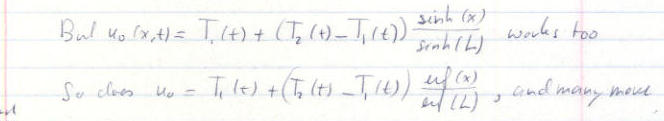 But u₀(x,t) = T₁(t) + (T₂(t) - T₁(t)) sinh(x)/sinh(L) works too
So does u₀ = T₁(t) + (T₂(t) - T₁(t)) erf(x)/erf(L), and many more